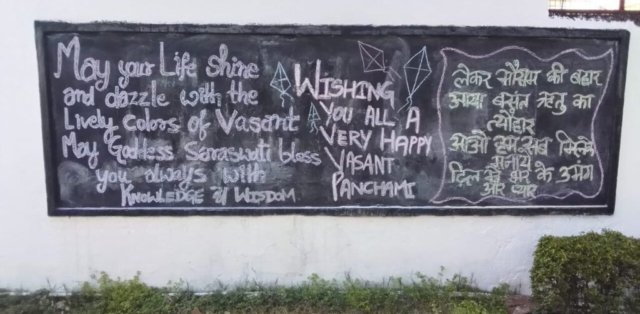 May your Life shine
and dazzle with the
Lively colors of Vasant
May Goddess Saraswati bless
you always with
KNOWLEDGE & WISDOM
WISHING
YOU ALL A
VERY HAPPY
VASANT
PANCHAMI
लेकर मौसम की बहार
आया बसंत ऋतु का
त्यौहार
आओ हम सब मिलके
मनाये
दिल में भर के उमंग
और प्यार